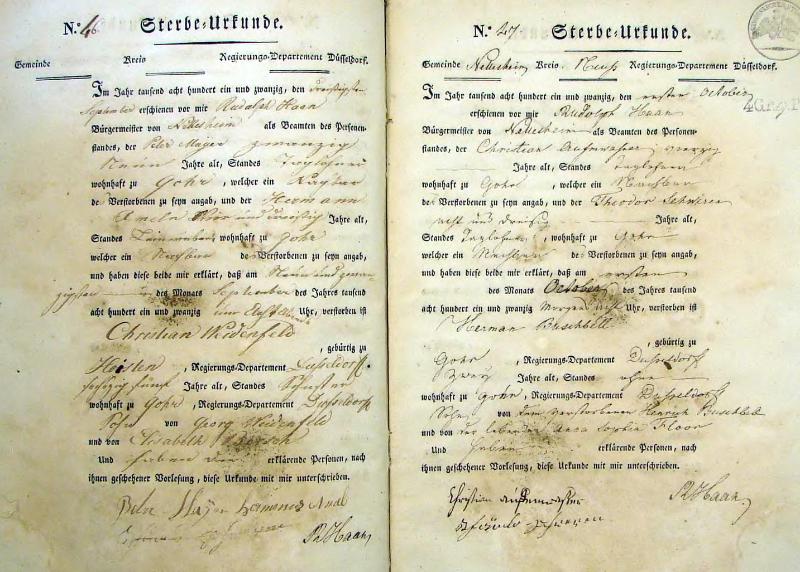 N.º 46. Sterbe-Urkunde.
Gemeinde Kreis Regierungs-Departement Düsseldorf.
Im Jahr tausend acht hundert ein und zwanzig, den dreißigsten
September erschienen vor mir Rudolph Haan
Bürgermeister von Nettesheim als Beamten der Personen-
standes, der Peter Mayer zwanzig
Neun Jahre alt, Standes Taglöhner
wohnhaft zu Gohr, welcher ein Nachbar
de Verstorbenen zu seyn angab, und der Hermann
und dreißig Jahre alt,
Standes wohnhaft zu Gohr
welcher ein Nachbar de Verstorbenen zu seyn angab,
und haben diese beide mir erklärt, daß am Neun und zwan
zigsten des Monats September des Jahres tausend
acht hundert ein und zwanzig um Uhr, verstorben ist
Christian Widenfeld
, gebürtig zu
Hoisten, Regierungs-Departement Düsseldorf
sechszig fünf Jahre alt, Standes
wohnhaft zu Gohr, Regierungs-Departement Düsseldorf
Sohn von Georg Widenfeld
und von Elisabeth
Und haben die erklärende Personen, nach
ihnen geschehener Vorlesung, diese Urkunde mit mir unterschrieben.
Peter Mayer
R Haan
N.º 47. Sterbe-Urkunde.
Gemeinde Nettesheim Kreis Neuß Regierungs-Departement Düsseldorf.
Im Jahr tausend acht hundert ein und zwanzig, den ersten October
erschienen vor mir Rudolph Haan
Bürgermeister von Nettesheim als Beamten der Personen-
standes, der Christian vierzig
Jahre alt, Standes Taglöhner
wohnhaft zu Gohr, welcher ein Nachbar
de Verstorbenen zu seyn angab, und der Theodor
acht und dreißig Jahre alt,
Standes Taglöhner, wohnhaft zu Gohr
welcher ein Nachbar de Verstorbenen zu seyn angab,
und haben diese beide mir erklärt, daß am ersten
des Monats October des Jahres tausend
acht hundert ein und zwanzig Morgens acht Uhr, verstorben ist
Herman Buschbell
, gebürtig zu
Gohr, Regierungs-Departement Düsseldorf
zwey Jahre alt, Standes ohne
wohnhaft zu Gohr, Regierungs-Departement Düsseldorf
Sohn von dem verstorbenen Henrich Buschbell
und von der lebenden Anna Sophia Floor
Und haben erklärende Personen, nach
ihnen geschehener Vorlesung, diese Urkunde mit mir unterschrieben.
Christian
R Haan